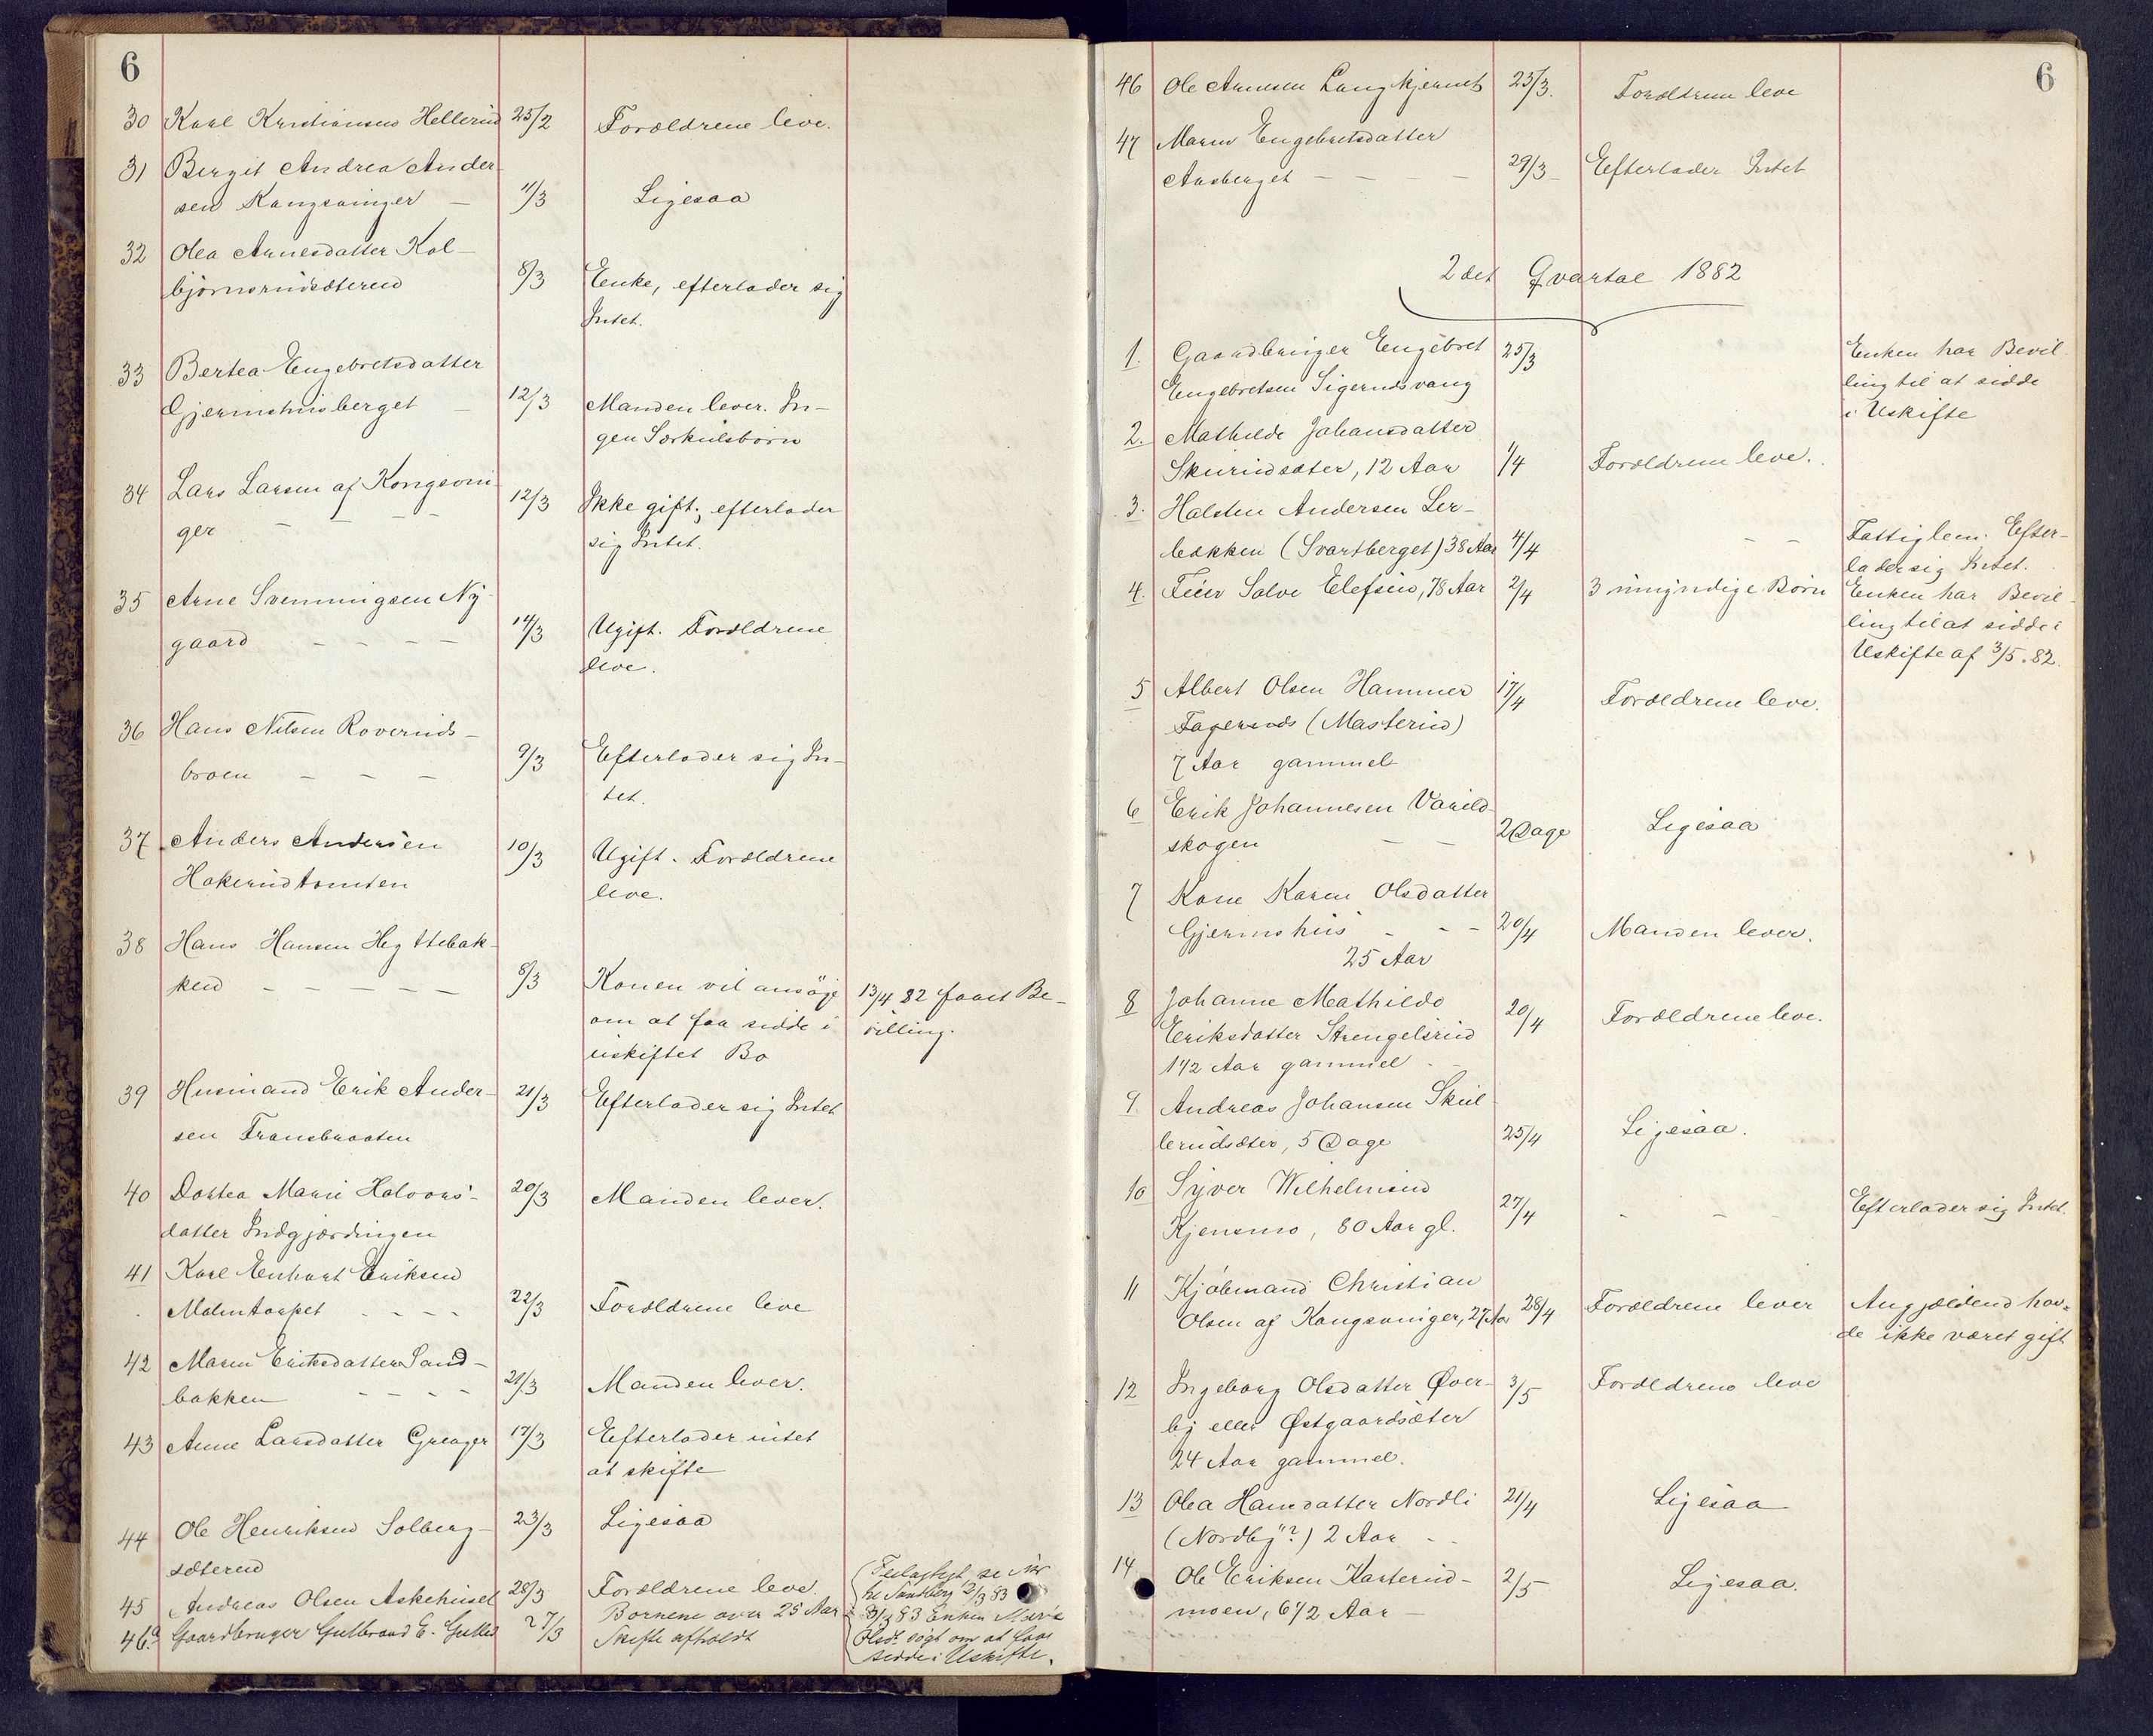 6
30 Karl Kristiansen Hellerud 25/2 Forældrene leve.
31 Bergit Andrea Ander-
sen Kongsvinger – 11/3 Ligesaa
32 Olea Arnesdatter Kol-
bjørnsrudsæteren 8/3 Enke, efterlader sig
Intet.
33 Bertea Engebretsdatter
Gjermshusberget – 12/3 Manden lever. In-
gen Særkulsbørn
34 Lars Larsen af Kongsvin-
ger – – – – 12/3 Ikke gift; efterlader
sig Intet.
35 Arne Svenningsen Ny-
gaard – – – – 14/3 Ugift. Forældrene
leve.
36 Hans Nilsen Roveruds-
broen – – – 9/3 Efterlader sig In-
tet.
37 Anders Andersen 10/3 Ugift. Forældrene
Hokerudtomten leve.
38 Hans Hansen Hyttebak-
ken – – – – – 8/3 Konen vil ansøge 13/4 82 faaet Be-
om at faa sidde i villing.
uskiftet Bo
39 Husmand Erik Ander- 21/3 Efterlader sig Intet
sen Fransbraaten
40 Dortea Marie Halvors- 20/3 Manden lever.
datter Indgjærdingen
41 Karl Enhart Eriksen
Malmtorpet – – – – 22/3 Forældrene leve
42 Maren Eriksdatter Sand-
bakken – – – – 21/3 Manden lever.
43 Anne Larsdatter Greager 17/3 Efterlader intet
at skifte
44 Ole Henriksen Solberg- 23/3 Ligesaa
sæteren
45 Andreas Olsen Askehuset 28/3 Forældrene leve.
46a Gaardbruger Gulbrand E. Gulli 27/3 Børnene over 25 Aar
Skifte afholdt
2/3 83
3/3 83 Enken
Olsdr. søgt om at faa
sidde i Uskifte.
6
46 Ole Arnesen Langkjernet 23/3. Forældrene leve
47 Maren Engebretsdatter
Aasberget – – – – 29/3 Efterlader Intet
2det Qvartal 1882
1. Gaardbruger Engebret 25/3 Enken har Bevil-
Engebretsen Sigerndsvang ling til at sidde
i Uskifte
2. Mathilde Johansdatter
Skurudsæter, 12 Aar 1/4 Forældrene leve.
3. Halsten Andersen Ler-
bakken (Svartberget) 38 Aar 4/4 – – Fattiglem. Efter-
lader sig Intet.
4. Feier Salve Elefsen, 78 Aar 2/4 3 umyndige Børn Enken har Bevil-
ling til at sidde i
Uskifte af 3/5. 82.
5 Albert Olsen Hammer 17/4 Forældrene leve.
Fagerends (Masterud)
7 Aar gammel
6 Erik Johannesen Varild-
skogen – – 2 Dage Ligesaa
7 Kone Karen Olsdatter
Gjermshus – – – 20/4 Manden lever.
25 Aar
8 Johanne Mathilde
Eriksdatter Strengelsrud 20/4 Forældrene leve.
1 1/2 Aar gammel
9. Andreas Johansen Skul-
lerudsæter, 5 Dage 25/4 Ligesaa.
10 Syver Wilhelmsen
Kjensmo, 80 Aar gl. 27/4 – – Efterlader sig Intet.
11 Kjøbmand Christian
Olsen af Kongsvinger, 27 Aar 28/4 Forældrene lever Angjældend hav-
de ikke været gift
12 Ingeborg Olsdatter Øver- 3/5 Forældrene leve
by eller Østgaardsæter
24 Aar gammel.
13 Olea Hansdatter Nordli 21/4 Ligesaa
(Nordby"?) 2 Aar
14 Ole Eriksen Karterud- 2/5 Ligesaa.
moen, 6 1/2 Aar –